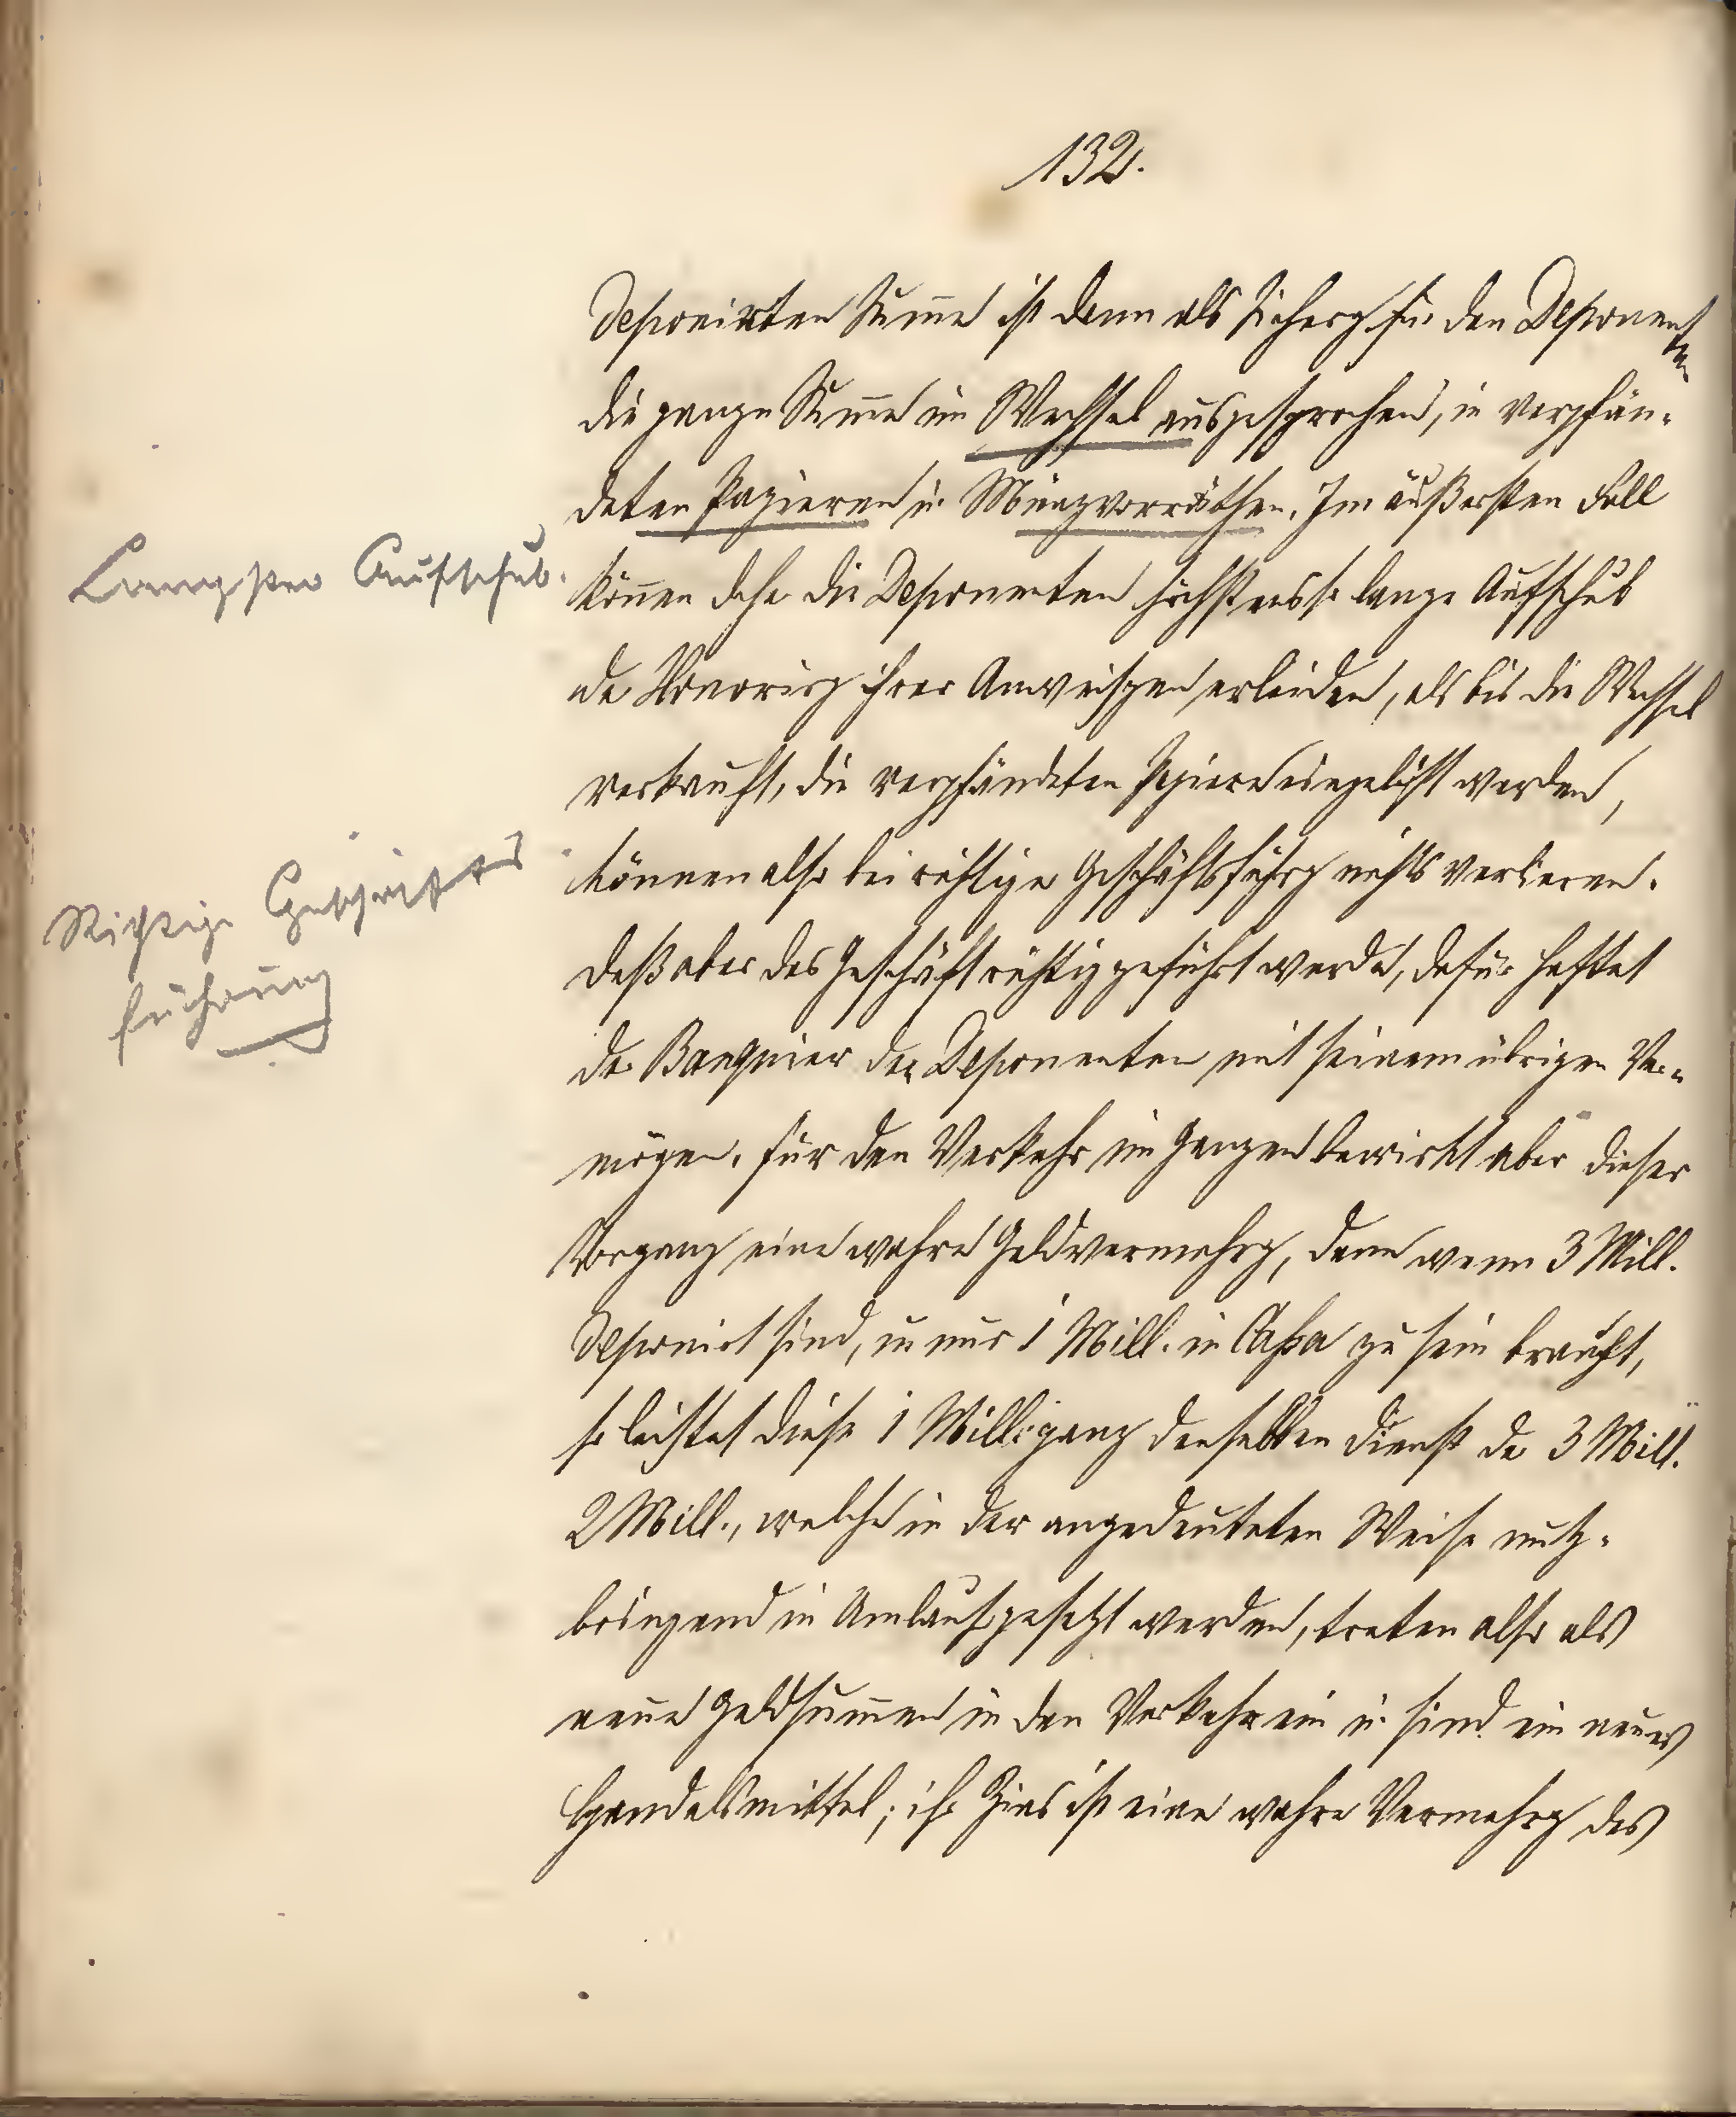 132.
deponirten Sum̅e ist dann als Sicherg für den Deponenten
die ganze Sum̅e im Wechsel ausgesprochen, in verpfän-
deten Papieren u. Münzvorräthen. Im äußersten Fall
Langster Aufschub.
kön̅en dahe die Deponenten höchstens so lange Aufschub
de Honorirg ihrer Anweisgen erleiden, als bis die Wechsel
verkauft, die verpfändeten Papiere eingelöst werden,
können also bei richtige Geschäftsführg nichts verlieren.
Richtige Geschäfts
führung
Daß aber das Geschäft richtig geführt werde, dafür haftet
de Banquier den Deponenten mit seinem übrigen Ver-
mögen. Für den Verkehr im Ganzen bewirkt aber dieser
Vorgang eine wahre Geldvermehrg, denn wenn 3 Mill.
deponirt sind, u nur 1 Mill. in Cassa zu sein braucht,
so leistet diese 1 Mill. ganz denselben Dienst de 3 Mill.
2 Mill., welche in der angedeuteten Weise nutz-
bringend in Umlauf gesetzt werden, treten also als
neue Geldsum̅en in den Verkehr ein u. sind ein neues
Handelsmittel; ihr Zins ist eine wahre Vermehrg des